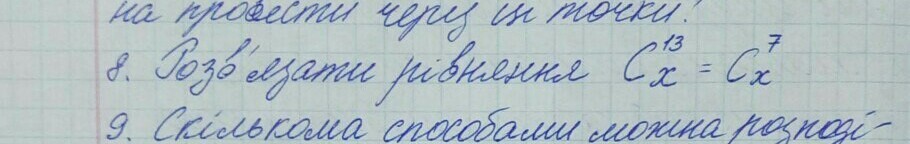 на провести через ці точки?
8. Розв'язати рівняння C_x^13 = C_x^7
9. Скількома способами можна розподі-